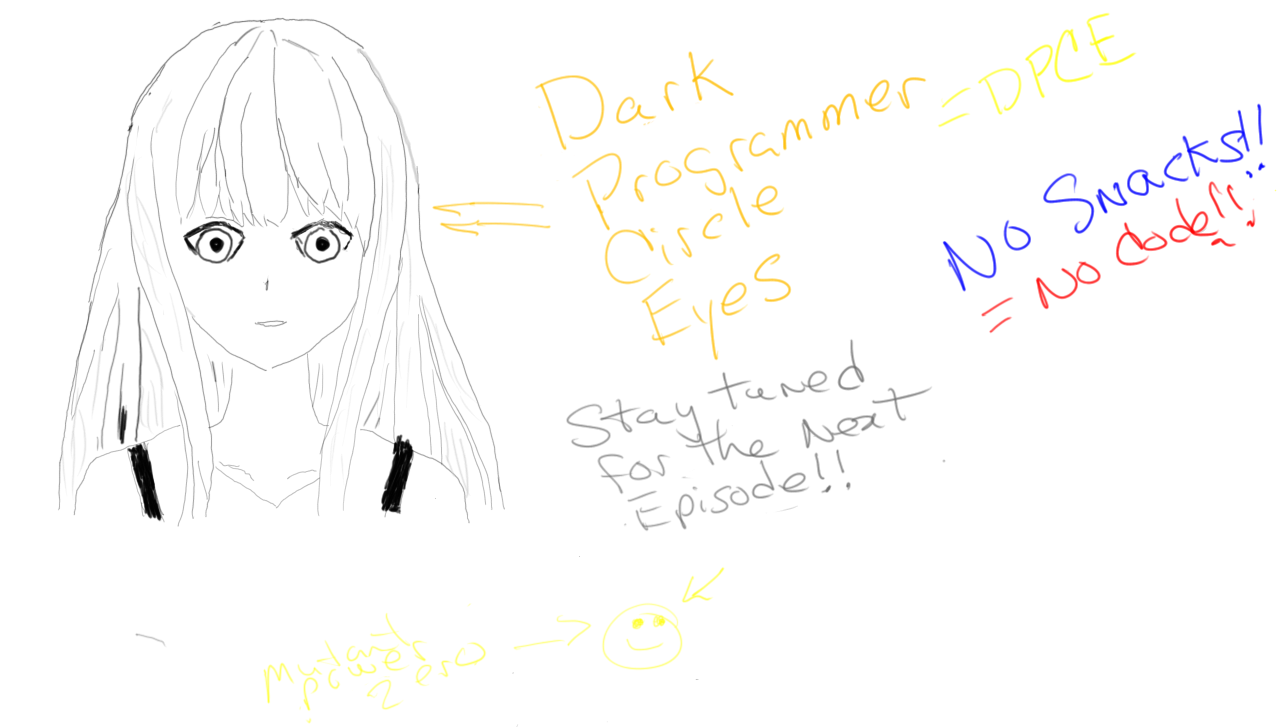 Dark
Programmer
Circle
Eyes
= DPCE
No Snacks!!
= No Code!!
Stay tuned
for the Next
Episode!!
mutant
power
zero